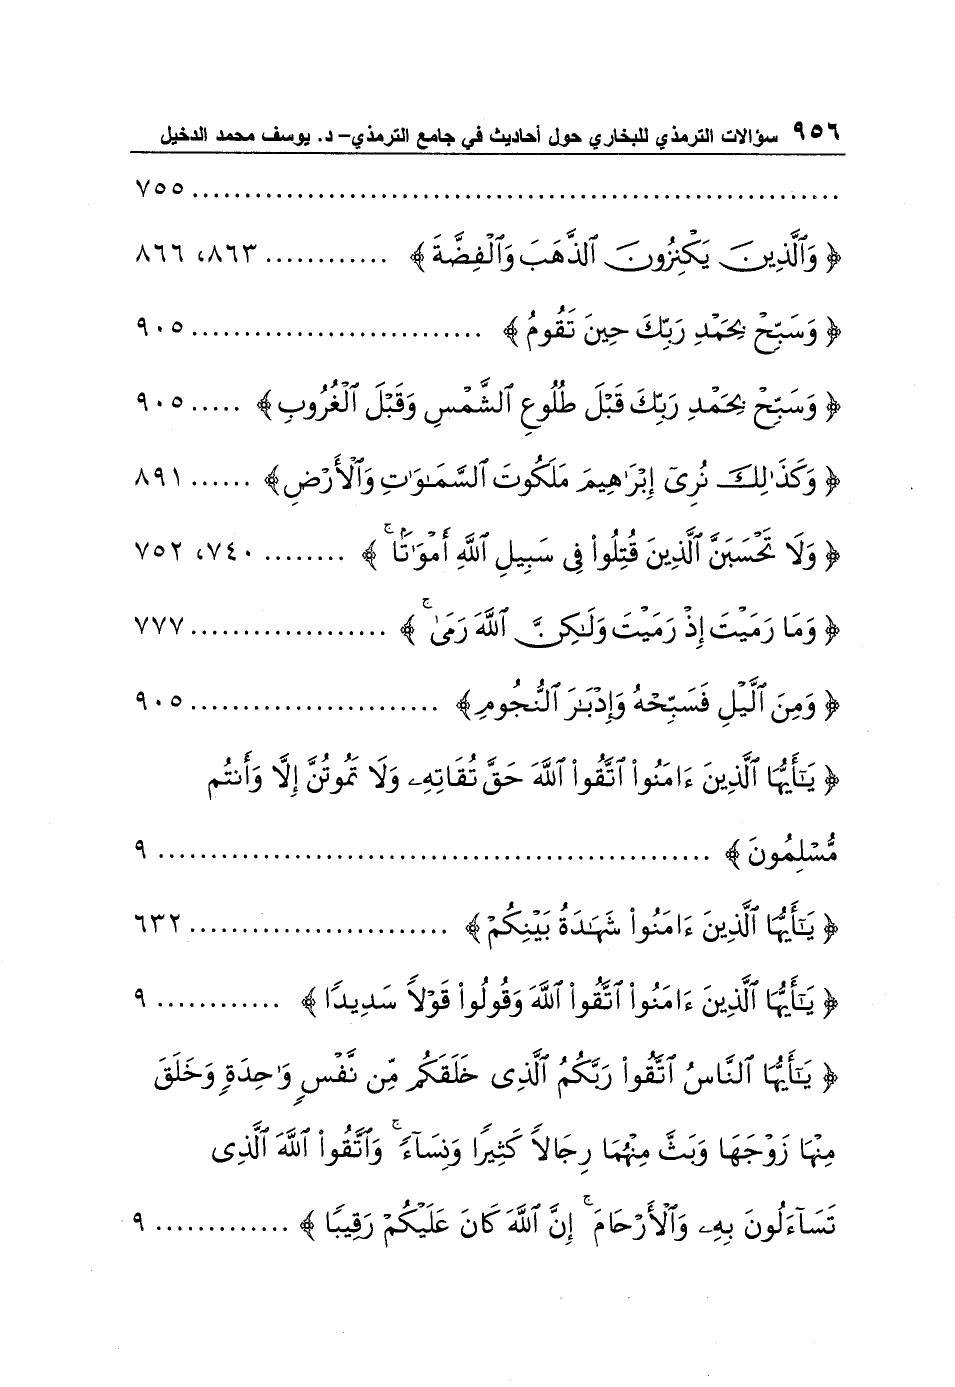 ٩٥٦ سؤالات الترمذي للبخاري حول أحاديث في جامع الترمذي- د. يوسف محمد الدخيل
............................................................... ٧٥٥
﴿ وَٱلَّذِينَ يَكْنِزُونَ ٱلذَّهَبَ وَٱلْفِضَّةَ ﴾ ............ ٨٦٣، ٨٦٦
﴿ وَسَبِّحْ بِحَمْدِ رَبِّكَ حِينَ تَقُومُ ﴾ ............................ ٩٠٥
﴿ وَسَبِّحْ بِحَمْدِ رَبِّكَ قَبْلَ طُلُوعِ ٱلشَّمْسِ وَقَبْلَ ٱلْغُرُوبِ ﴾ ..... ٩٠٥
﴿ وَكَذَٰلِكَ نُرِىٓ إِبْرَٰهِيمَ مَلَكُوتَ ٱلسَّمَٰوَٰتِ وَٱلْأَرْضِ ﴾ ...... ٨٩١
﴿ وَلَا تَحْسَبَنَّ ٱلَّذِينَ قُتِلُوا۟ فِى سَبِيلِ ٱللَّهِ أَمْوَٰتًۢا ۚ ﴾ ........ ٧٤٠، ٧٥٢
﴿ وَمَا رَمَيْتَ إِذْ رَمَيْتَ وَلَٰكِنَّ ٱللَّهَ رَمَىٰ ۚ ﴾ ................... ٧٧٧
﴿ وَمِنَ ٱلَّيْلِ فَسَبِّحْهُ وَإِدْبَٰرَ ٱلنُّجُومِ ﴾ ........................ ٩٠٥
﴿ يَٰٓأَيُّهَا ٱلَّذِينَ ءَامَنُوا۟ ٱتَّقُوا۟ ٱللَّهَ حَقَّ تُقَاتِهِۦ وَلَا تَمُوتُنَّ إِلَّا وَأَنتُم
مُّسْلِمُونَ ﴾ ..................................................... ٩
﴿ يَٰٓأَيُّهَا ٱلَّذِينَ ءَامَنُوا۟ شَهَٰدَةُ بَيْنِكُمْ ﴾ ......................... ٦٣٢
﴿ يَٰٓأَيُّهَا ٱلَّذِينَ ءَامَنُوا۟ ٱتَّقُوا۟ ٱللَّهَ وَقُولُوا۟ قَوْلًا سَدِيدًا ﴾ ............ ٩
﴿ يَٰٓأَيُّهَا ٱلنَّاسُ ٱتَّقُوا۟ رَبَّكُمُ ٱلَّذِى خَلَقَكُم مِّن نَّفْسٍ وَٰحِدَةٍ وَخَلَقَ
مِنْهَا زَوْجَهَا وَبَثَّ مِنْهُمَا رِجَالًا كَثِيرًا وَنِسَآءً ۚ وَٱتَّقُوا۟ ٱللَّهَ ٱلَّذِى
تَسَآءَلُونَ بِهِۦ وَٱلْأَرْحَامَ ۚ إِنَّ ٱللَّهَ كَانَ عَلَيْكُمْ رَقِيبًا ﴾ ............. ٩